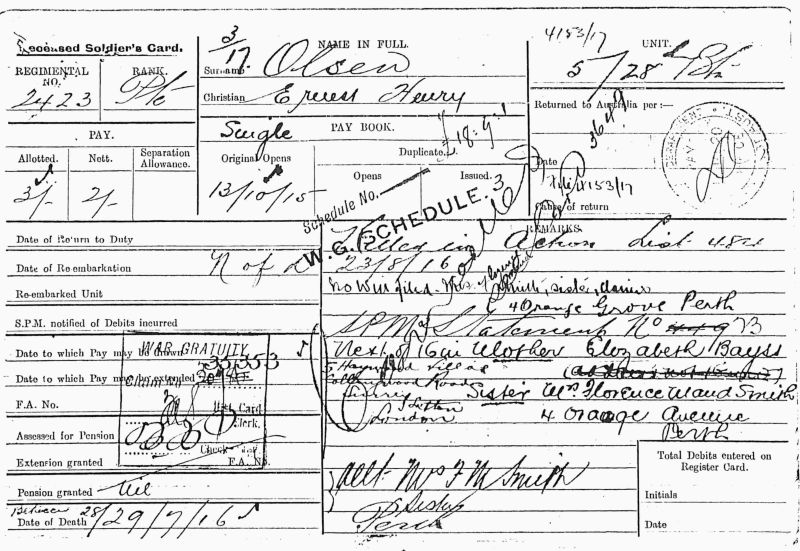 Deceased Soldier's Card.
REGIMENTAL NO.
2423
RANK.
Pte
3/17
NAME IN FULL.
Surname Olsen
Christian Ernest Henry
4153/17
UNIT.
5/28 Btn
PAY.
Allotted.
Nett.
Separation Allowance.
3/-
2/-
Single
PAY BOOK.
Original Opens
13/10/15
Duplicate.
£18.9.1
Opens
Issued.
Returned to Australia per:—
3649
Date
4153/17
Cause of return
Schedule No.
W.G. SCHEDULE. 3
REMARKS.
Date of Return to Duty
Killed in Action List 484
Date of Re-embarkation
N of
23/8/16
Re-embarked Unit
No Will filed. Mrs. Smith, sister,
4 Orange Grove Perth
S.P.M. notified of Debits incurred
S.P.M. Statement No 73
Date to which Pay may be drawn
WAR GRATUITY
35353
Next of Kin Mother Elizabeth Bayss
Date to which Pay may be extended
Villas
Road
F.A. No.
Card
Clerk.
Sister Mrs Florence Maud Smith
London
4 Orange Avenue
Perth
Assessed for Pension
Extension granted
F.A. No.
Total Debits entered on Register Card.
Pension granted Nil
Allt. Mrs F M Smith
Sister
Perth
Initials
Between 28/29/7/16
Date of Death
Date